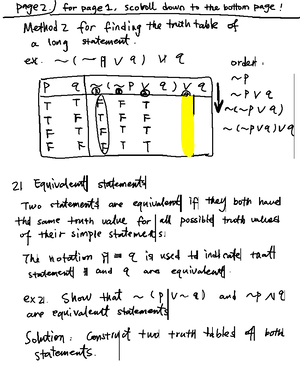 page2) for page 1, scoboll down to the bottom page!
Method 2 for finding the truth table of
a long statement.
ex. ~(~p ∨ q) ∨ q
order:
~p
~p ∨ q
~(~p ∨ q)
~(~p∨q)∨q
P q ~(~p ∨ q) ∨ q
T T F F T
T F F F
F T F T T
F F F T T
2) Equivalent statements
Two statements are equivalent if they both have
the same truth value for all possible truth values
of their simple statements.
The notation ≡ q is used to indicate that
statement and q are equivalent.
ex 2). Show that ~(p ∨ ~q) and ~p ∧ q
are equivalent statements
Solution: Construct two truth tables of both
statements.